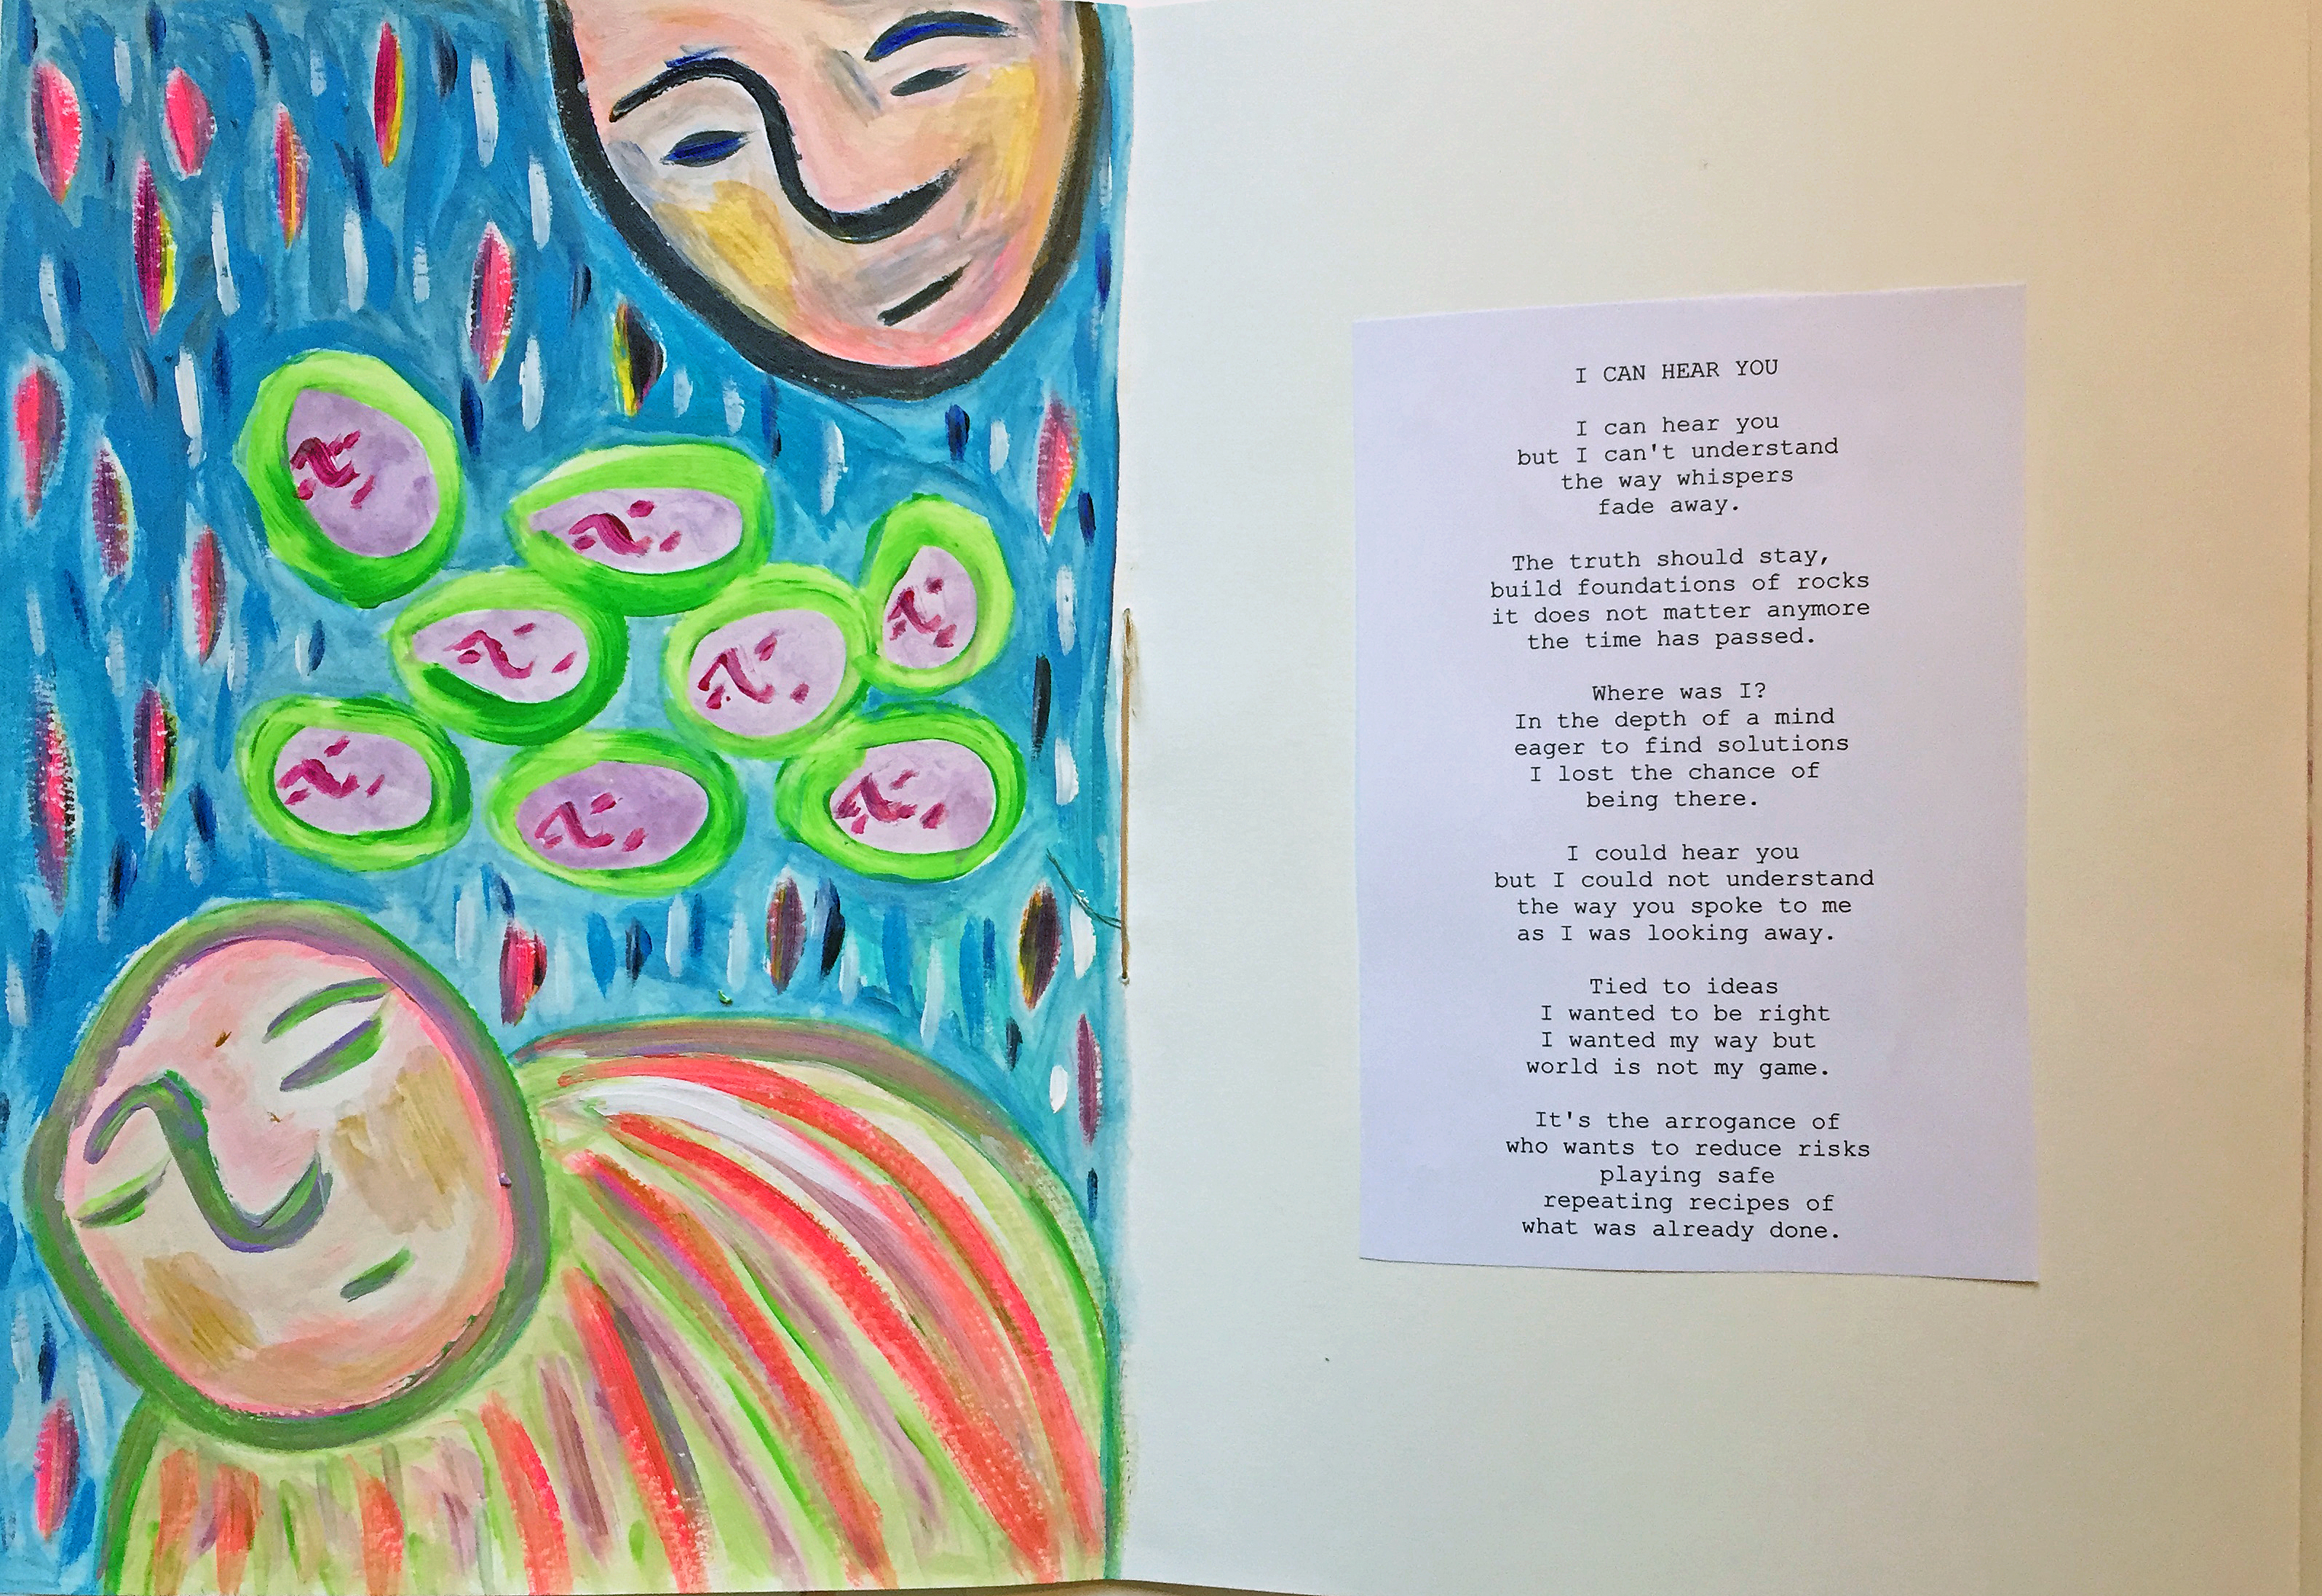 I CAN HEAR YOU
I can hear you
but I can't understand
the way whispers
fade away.
The truth should stay,
build foundations of rocks
it does not matter anymore
the time has passed.
Where was I?
In the depth of a mind
eager to find solutions
I lost the chance of
being there.
I could hear you
but I could not understand
the way you spoke to me
as I was looking away.
Tied to ideas
I wanted to be right
I wanted my way but
world is not my game.
It's the arrogance of
who wants to reduce risks
playing safe
repeating recipes of
what was already done.